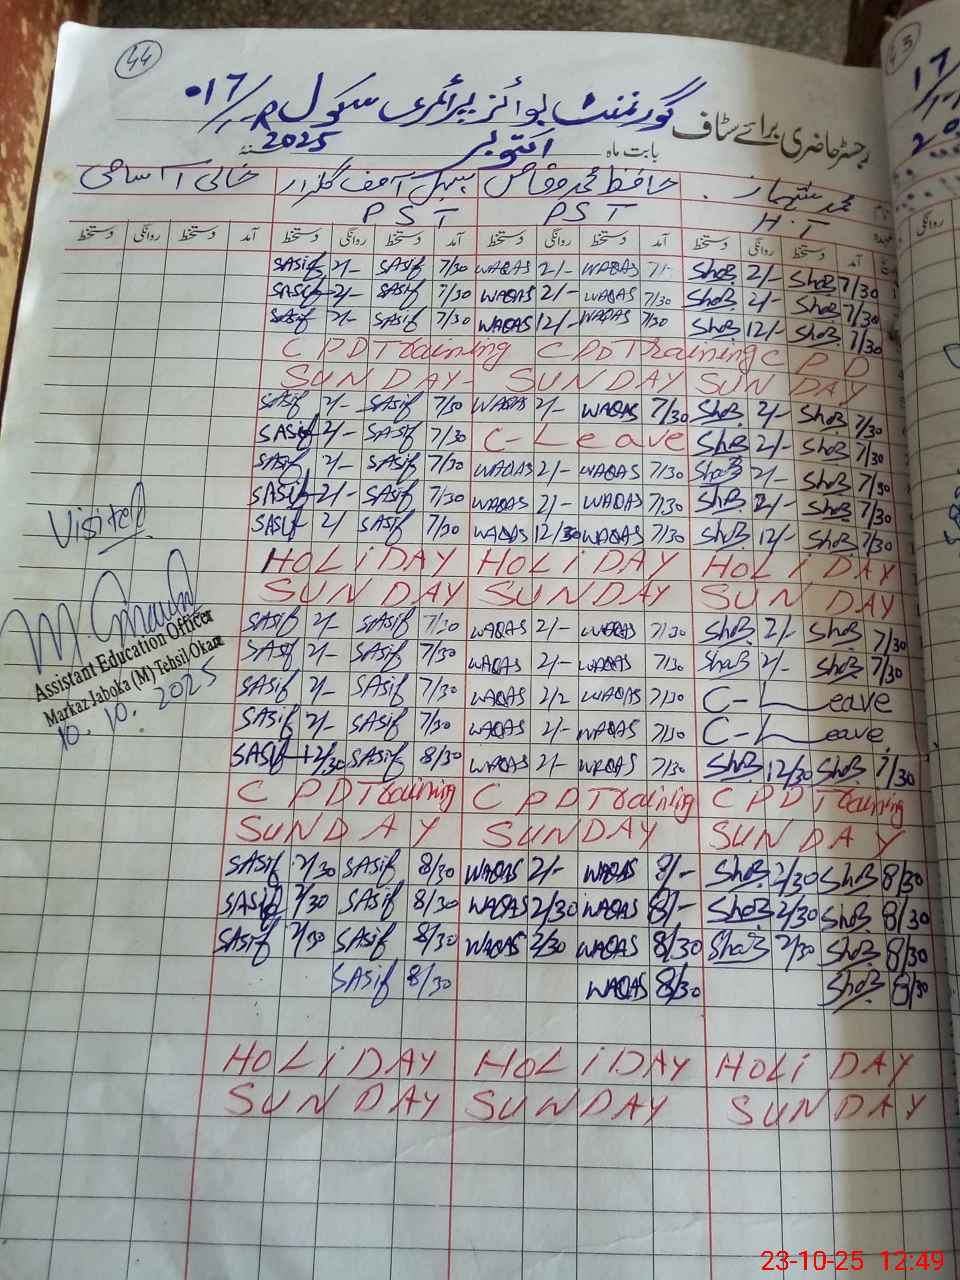 44
رجسٹر حاضری برائے سٹاف گورنمنٹ بوائز پرائمری سکول 17/1-R
بابت ماہ اکتوبر 2025
محمد شہباز حافظ محمد وقاص سہیل آصف گلزار خالی آسامی
H.T PST PST
آمد دستخط روانگی دستخط آمد دستخط روانگی دستخط آمد دستخط روانگی دستخط آمد دستخط روانگی دستخط
SASif 2/- SASif 7/30 WAQAS 2/- WAQAS 7/- ShaB 2/- ShaB 7/30
SASif 2/- SASif 7/30 WAQAS 2/- WAQAS 7/30 ShaB 2/- ShaB 7/30
SASif 2/- SASif 7/30 WAQAS 12/- WAQAS 7/30 ShaB 12/- ShaB 7/30
CPD Training CPD Training CPD
SUNDAY SUNDAY SUNDAY
SASif 2/- SASif 7/30 WAQAS 2/- WAQAS 7/30 ShaB 2/- ShaB 7/30
SASif 2/- SASif 7/30 C-Leave ShaB 2/- ShaB 7/30
SASif 2/- SASif 7/30 WAQAS 2/- WAQAS 7/30 ShaB 2/- ShaB 7/30
SASif 2/- SASif 7/30 WAQAS 2/- WAQAS 7/30 ShaB 2/- ShaB 7/30
SASif 2/ SASif 7/30 WAQAS 12/30 WAQAS 7/30 ShaB 12/- ShaB 7/30
HOLiDAY HOLiDAY HOLiDAY
SUNDAY SUNDAY SUNDAY
SASif 2/- SASif 7/30 WAQAS 2/- WAQAS 7/30 ShaB 2/- ShaB 7/30
SASif 2/- SASif 7/30 WAQAS 2/- WAQAS 7/30 ShaB 2/- ShaB 7/30
SASif 2/- SASif 7/30 WAQAS 2/2 WAQAS 7/30 C-Leave
SASif 2/- SASif 7/30 WAQAS 2/- WAQAS 7/30 C-Leave
SASif 12/30 SASif 8/30 WAQAS 2/- WAQAS 7/30 ShaB 12/30 ShaB 7/30
CPD Training CPD Training CPD Training
SUNDAY SUNDAY SUNDAY
SASif 2/30 SASif 8/30 WAQAS 2/- WAQAS 8/- ShaB 2/30 ShaB 8/30
SASif 2/30 SASif 8/30 WAQAS 2/30 WAQAS 8/- ShaB 2/30 ShaB 8/30
SASif 2/30 SASif 8/30 WAQAS 2/30 WAQAS 8/30 ShaB 2/30 ShaB 8/30
SASif 8/30 WAQAS 8/30 ShaB 8/30
HOLiDAY HOLiDAY HOLiDAY
SUNDAY SUNDAY SUNDAY
Visited
Assistant Education Officer
Markaz Jaboka (M) Tehsil/Okara
10.10.2025
43
روانگی
23-10-25 12:49